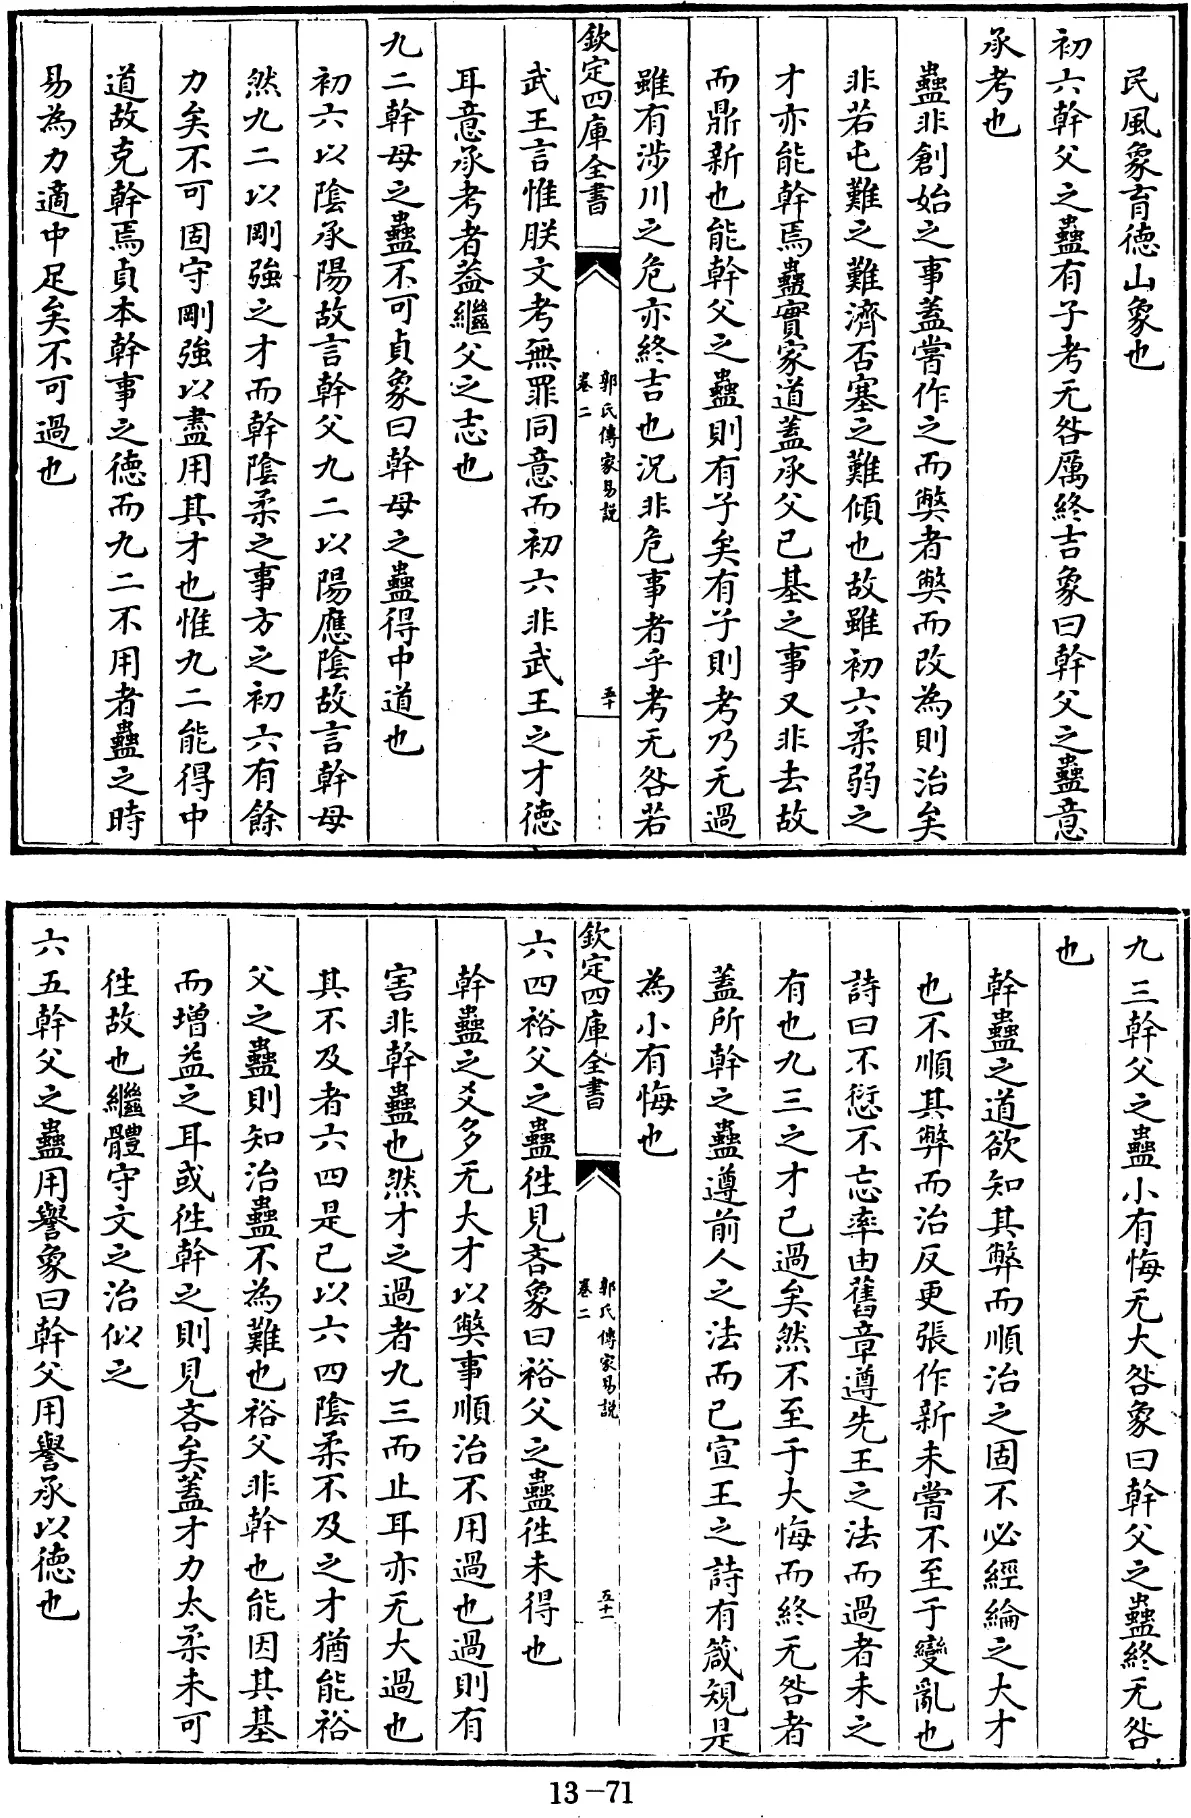 民風象育德山象也
初六幹父之蠱有子考无咎厲終吉象曰幹父之蠱意
承考也
蠱非創始之事蓋嘗作之而弊者弊而改為則治矣
非若屯難之難濟否塞之難傾也故雖初六柔弱之
才亦能幹焉蠱實家道蓋承父已基之事又非去故
而鼎新也能幹父之蠱則有子矣有子則考乃无過
雖有涉川之危亦終吉也況非危事者乎考无咎若
欽定四庫全書
郭氏傳家易說
卷二
五十
武王言惟朕文考無罪同意而初六非武王之才德
耳意承考者益繼父之志也
九二幹母之蠱不可貞象曰幹母之蠱得中道也
初六以陰承陽故言幹父九二以陽應陰故言幹母
然九二以剛強之才而幹陰柔之事方之初六有餘
力矣不可固守剛強以盡用其才也惟九二能得中
道故克幹焉貞本幹事之德而九二不用者蠱之時
易為力適中足矣不可過也
九三幹父之蠱小有悔无大咎象曰幹父之蠱終无咎
也
幹蠱之道欲知其弊而順治之固不必經綸之大才
也不順其弊而治反更張作新未嘗不至于變亂也
詩曰不愆不忘率由舊章遵先王之法而過者未之
有也九三之才已過矣然不至于大悔而終无咎者
蓋所幹之蠱遵前人之法而已宣王之詩有箴規是
為小有悔也
欽定四庫全書
郭氏傳家易說
卷二
五十一
六四裕父之蠱徃見吝象曰裕父之蠱徃未得也
幹蠱之爻多无大才以弊事順治不用過也過則有
害非幹蠱也然才之過者九三而止耳亦无大過也
其不及者六四是已以六四陰柔不及之才猶能裕
父之蠱則知治蠱不為難也裕父非幹也能因其基
而增益之耳或徃幹之則見吝矣蓋才力太柔未可
徃故也繼體守文之治似之
六五幹父之蠱用譽象曰幹父用譽承以德也
13-71